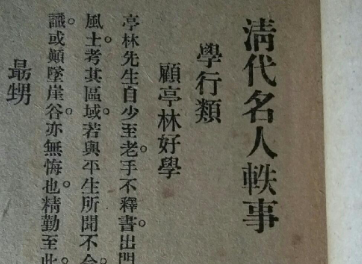 清代名人軼事
學行類
顧亭林好學
亭林先生自少至老。手不釋書。出門
風土。考其區域。若與平生所聞不合
識。或顚墜崖谷。亦無悔也。精勤至此
勗甥